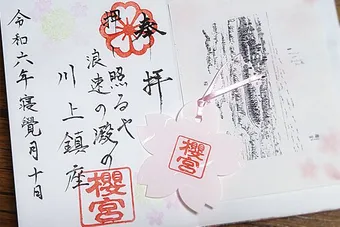 奉拝
照るや
浪速の澱の
川上鎮座
令和六年寝覺月十日
櫻宮
櫻宮